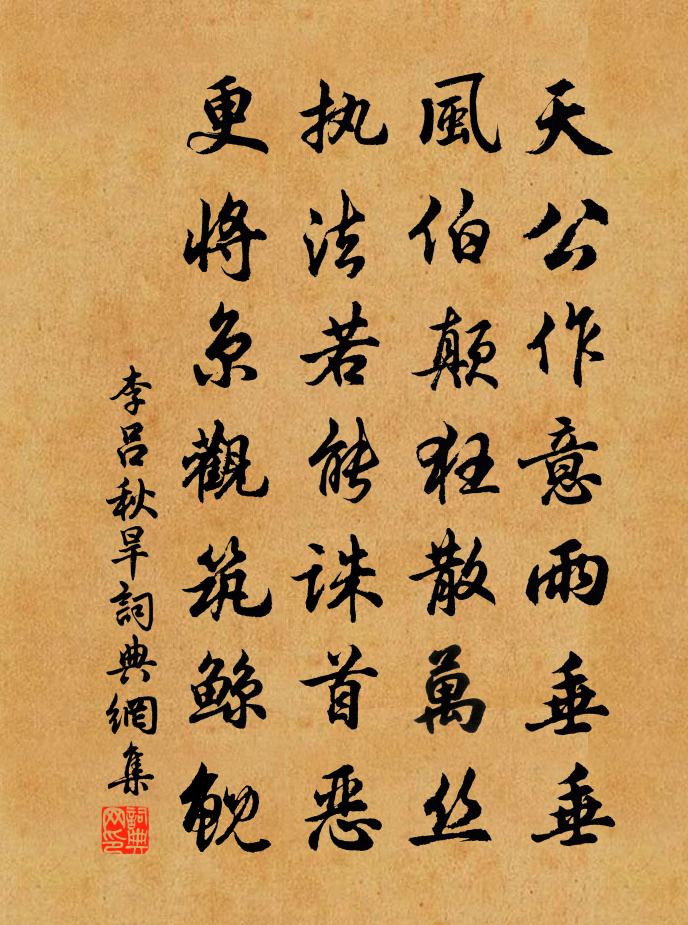 天公作意雨垂垂
風伯顛狂散萬丝
执法若能诛首恶
更将京觀筑鲸鲵
李吕秋旱詞典網集
詞典网印